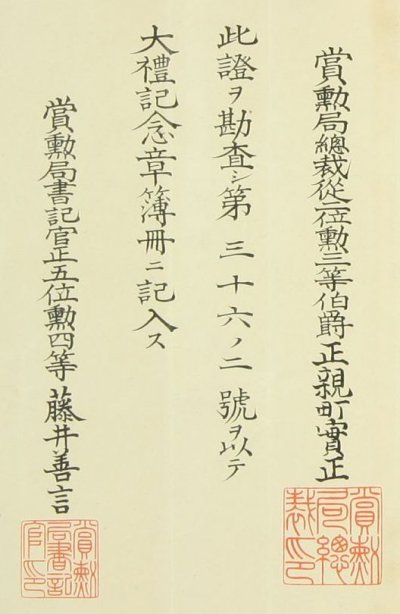 賞勲局總裁從二位勲三等伯爵正親町實正
此證ヲ勘査シ第三十六ノ二號ヲ以テ
大禮記念章簿冊ニ記入ス
賞勲局書記官正五位勲四等藤井善言
賞勲局總裁印
賞勲局書記官印